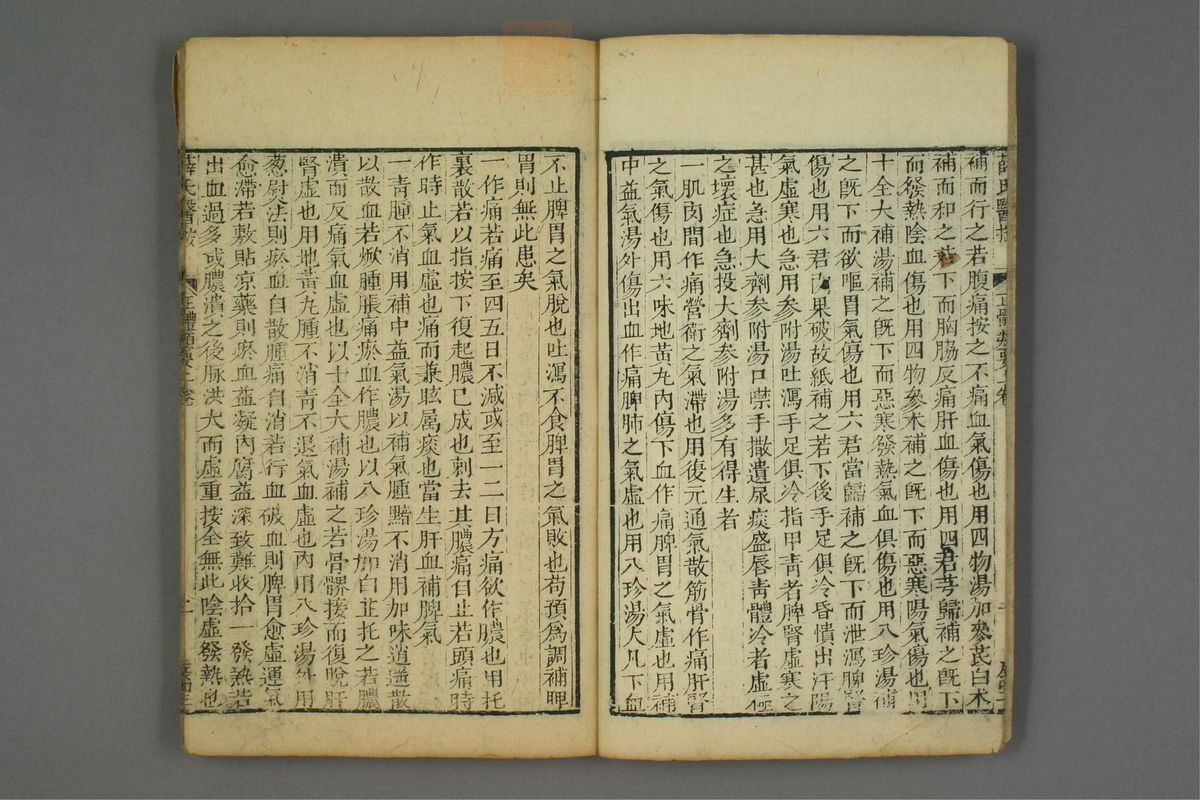 補而行之若腹痛按之不痛血氣傷也用四物湯加參芪白朮
補而和之若下而胸脇反痛肝血傷也用四君芎歸補之既下
而發熱陰血傷也用四物參朮補之既下而惡寒陽氣傷也用
十全大補湯補之既下而惡寒發熱氣血俱傷也用八珍湯補
之既下而欲嘔胃氣傷也用六君當歸補之既下而泄瀉脾腎
傷也用六君肉果破故紙補之若下後手足俱冷昏憒出汗陽
氣虛寒也急用參附湯吐瀉手足俱冷指甲靑者脾腎虛寒之
甚也急用大劑參附湯口噤手撒遺尿痰盛唇靑體冷者虛極
之壞症也急投大劑參附湯多有得生者
一肌肉間作痛營衛之氣滯也用復元通氣散筋骨作痛肝腎
之氣傷也用六味地黃丸內傷下血作痛脾胃之氣虛也用補
中益氣湯外傷出血作痛脾肺之氣虛也用八珍湯大凡下血
不止脾胃之氣脫也吐瀉不食脾胃之氣敗也苟預爲調補脾
胃則無此患矣
一作痛若痛至四五日不減或至一二日方痛欲作膿也用托
裏散若以指按下復起膿已成也刺去其膿痛自止若頭痛時
作時止氣血虛也痛而兼眩屬痰也當生肝血補脾氣
一靑腫不消用補中益氣湯以補氣腫黯不消用加味逍遙散
以散血若焮腫脹痛瘀血作膿也以八珍湯加白芷托之若膿
潰而反痛氣血虛也以十全大補湯補之若骨髎接而復脫肝
腎虛也用地黃丸腫不消靑不退氣血虛也內用八珍湯外用
葱熨法則瘀血自散腫痛自消若行血破血則脾胃愈虛運氣
愈滯若敷貼涼藥則瘀血益凝內腐益深致難收拾一發熱若
出血過多或膿潰之後脈洪大而虛重按全無此陰虛發熱也
薛氏醫按
正體類要上卷